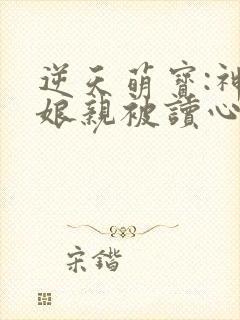 逆天萌寶:神
娘親被讀心
宋鍇